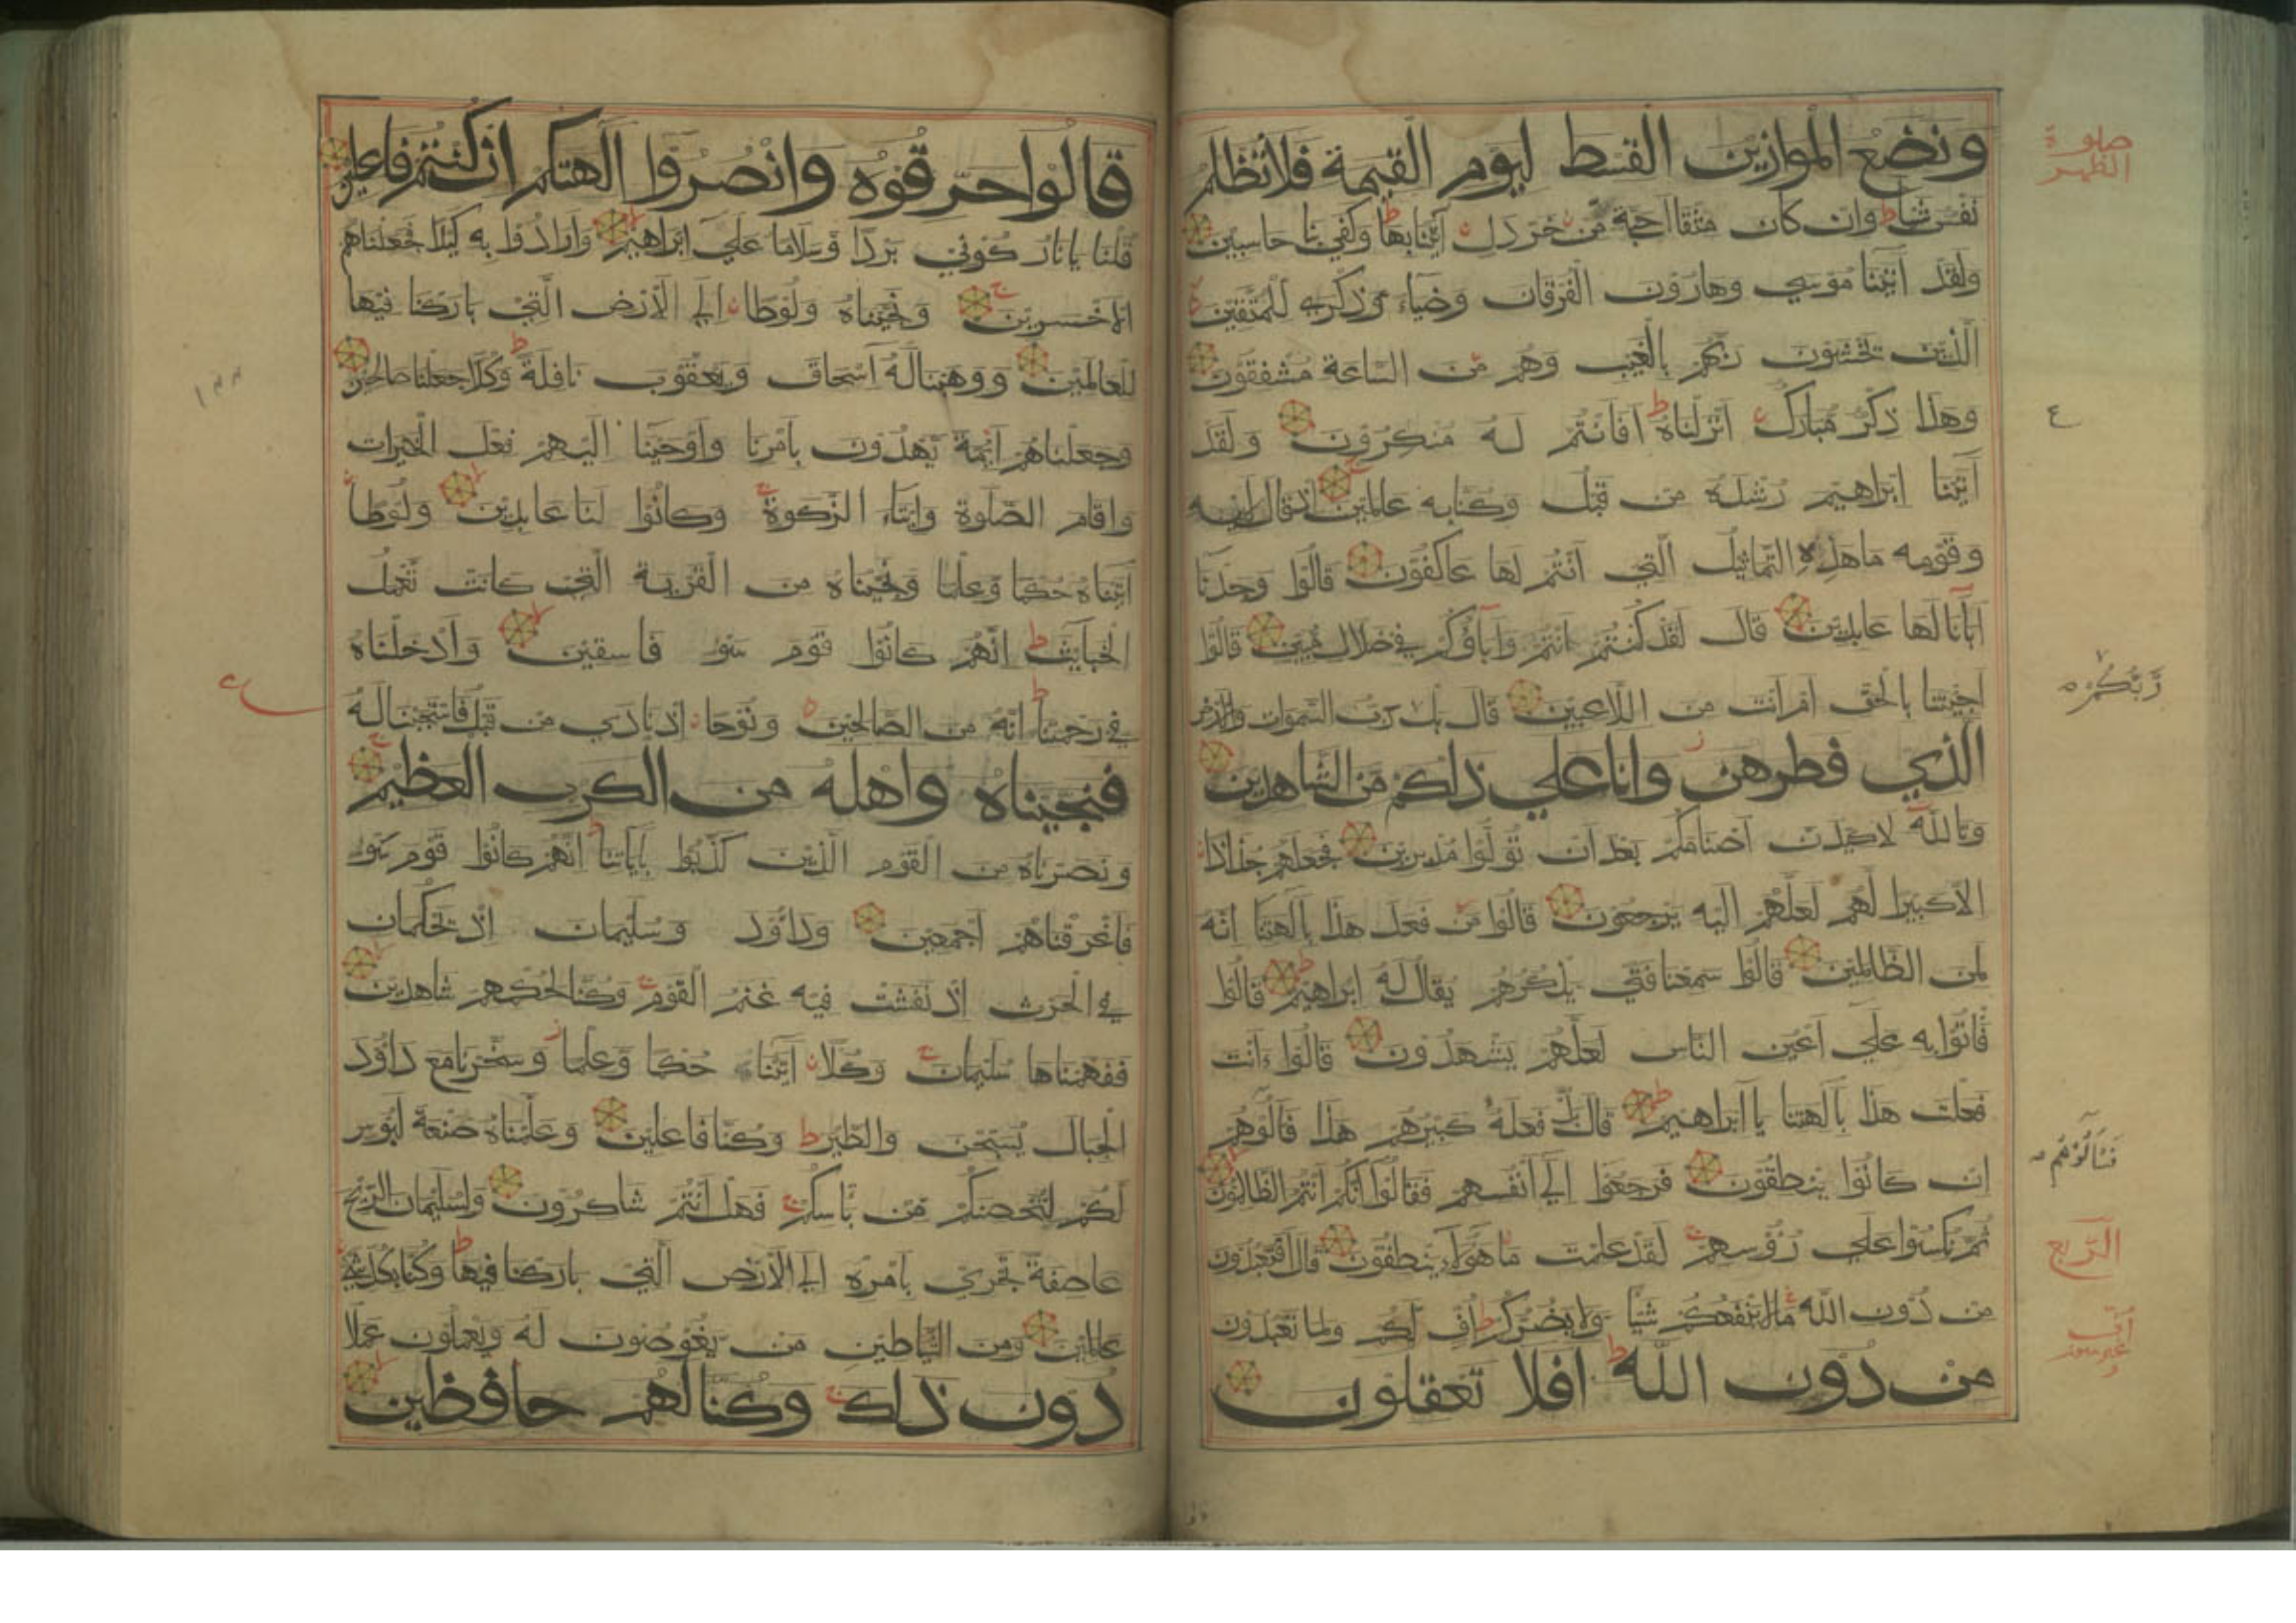 ونضع الموازين القسط ليوم القيمة فلا تظلم
نفس شيا وان كان مثقال حبة من خردل اتينا بها وكفي بنا حاسبين
ولقد اتينا موسي وهارون الفرقان وضياء وذكري للمتقين
الذين يخشون ربهم بالغيب وهم من الساعة مشفقون
وهذا ذكر مبارك انزلناه افانتم له منكرون ولقد
اتينا ابراهيم رشده من قبل وكنا به عالمين اذ قال لابيه
وقومه ما هذه التماثيل التي انتم لها عاكفون قالوا وجدنا
ابانا لها عابدين قال لقد كنتم انتم واباؤكم في ضلال مبين قالوا
اجيتنا بالحق ام انت من اللاعبين قال بل رب السموات والارض
الذي فطرهن وانا علي ذلكم من الشاهدين
وتالله لاكيدن اصنامكم بعد ان تولوا مدبرين فجعلهم جذاذا
الا كبيرا لهم لعلهم اليه يرجعون قالوا من فعل هذا بالهتنا انه
لمن الظالمين قالوا سمعنا فتي يذكرهم يقال له ابراهيم قالوا
فاتوا به علي اعين الناس لعلهم يشهدون قالوا ءانت
فعلت هذا بالهتنا يا ابراهيم قال بل فعله كبيرهم هذا فالوهم
ان كانوا ينطقون فرجعوا الي انفسهم فقالوا انكم انتم الظالمون
ثم نكسوا علي رؤسهم لقد علمت ما هؤلاء ينطقون قال افتعبدون
من دون الله ما لا ينفعكم شيا ولا يضركم اف لكم ولما تعبدون
من دون الله افلا تعقلون
صلوة
الظهر
ع
ربكم
فسالوهم
الربع
قالوا حرقوه وانصروا الهتكم ان كنتم فاعلين
قلنا يا نار كوني بردا وسلاما علي ابراهيم وارادوا به كيدا فجعلناهم
الاخسرين ونجيناه ولوطا الي الارض التي باركنا فيها
للعالمين ووهبنا له اسحاق ويعقوب نافلة وكلا جعلنا صالحين
وجعلناهم ائمة يهدون بامرنا واوحينا اليهم فعل الخيرات
واقام الصلوة وايتاء الزكوة وكانوا لنا عابدين ولوطا
اتيناه حكما وعلما ونجيناه من القرية التي كانت تعمل
الخبايث انهم كانوا قوم سوء فاسقين وادخلناه
في رحمتنا انه من الصالحين ونوحا اذ نادي من قبل فاستجبنا له
فنجيناه واهله من الكرب العظيم
ونصرناه من القوم الذين كذبوا باياتنا انهم كانوا قوم سوء
فاغرقناهم اجمعين وداؤد وسليمان اذ يحكمان
في الحرث اذ نفشت فيه غنم القوم وكنا لحكمهم شاهدين
ففهمناها سليمان وكلا اتينا حكما وعلما وسخرنا مع داؤد
الجبال يسبحن والطير وكنا فاعلين وعلمناه صنعة لبوس
لكم لتحصنكم من باسكم فهل انتم شاكرون ولسليمان الريح
عاصفة تجري بامره الي الارض التي باركنا فيها وكنا بكل شي
عالمين ومن الشياطين من يغوصون له ويعملون عملا
دون ذلك وكنا لهم حافظين
ع